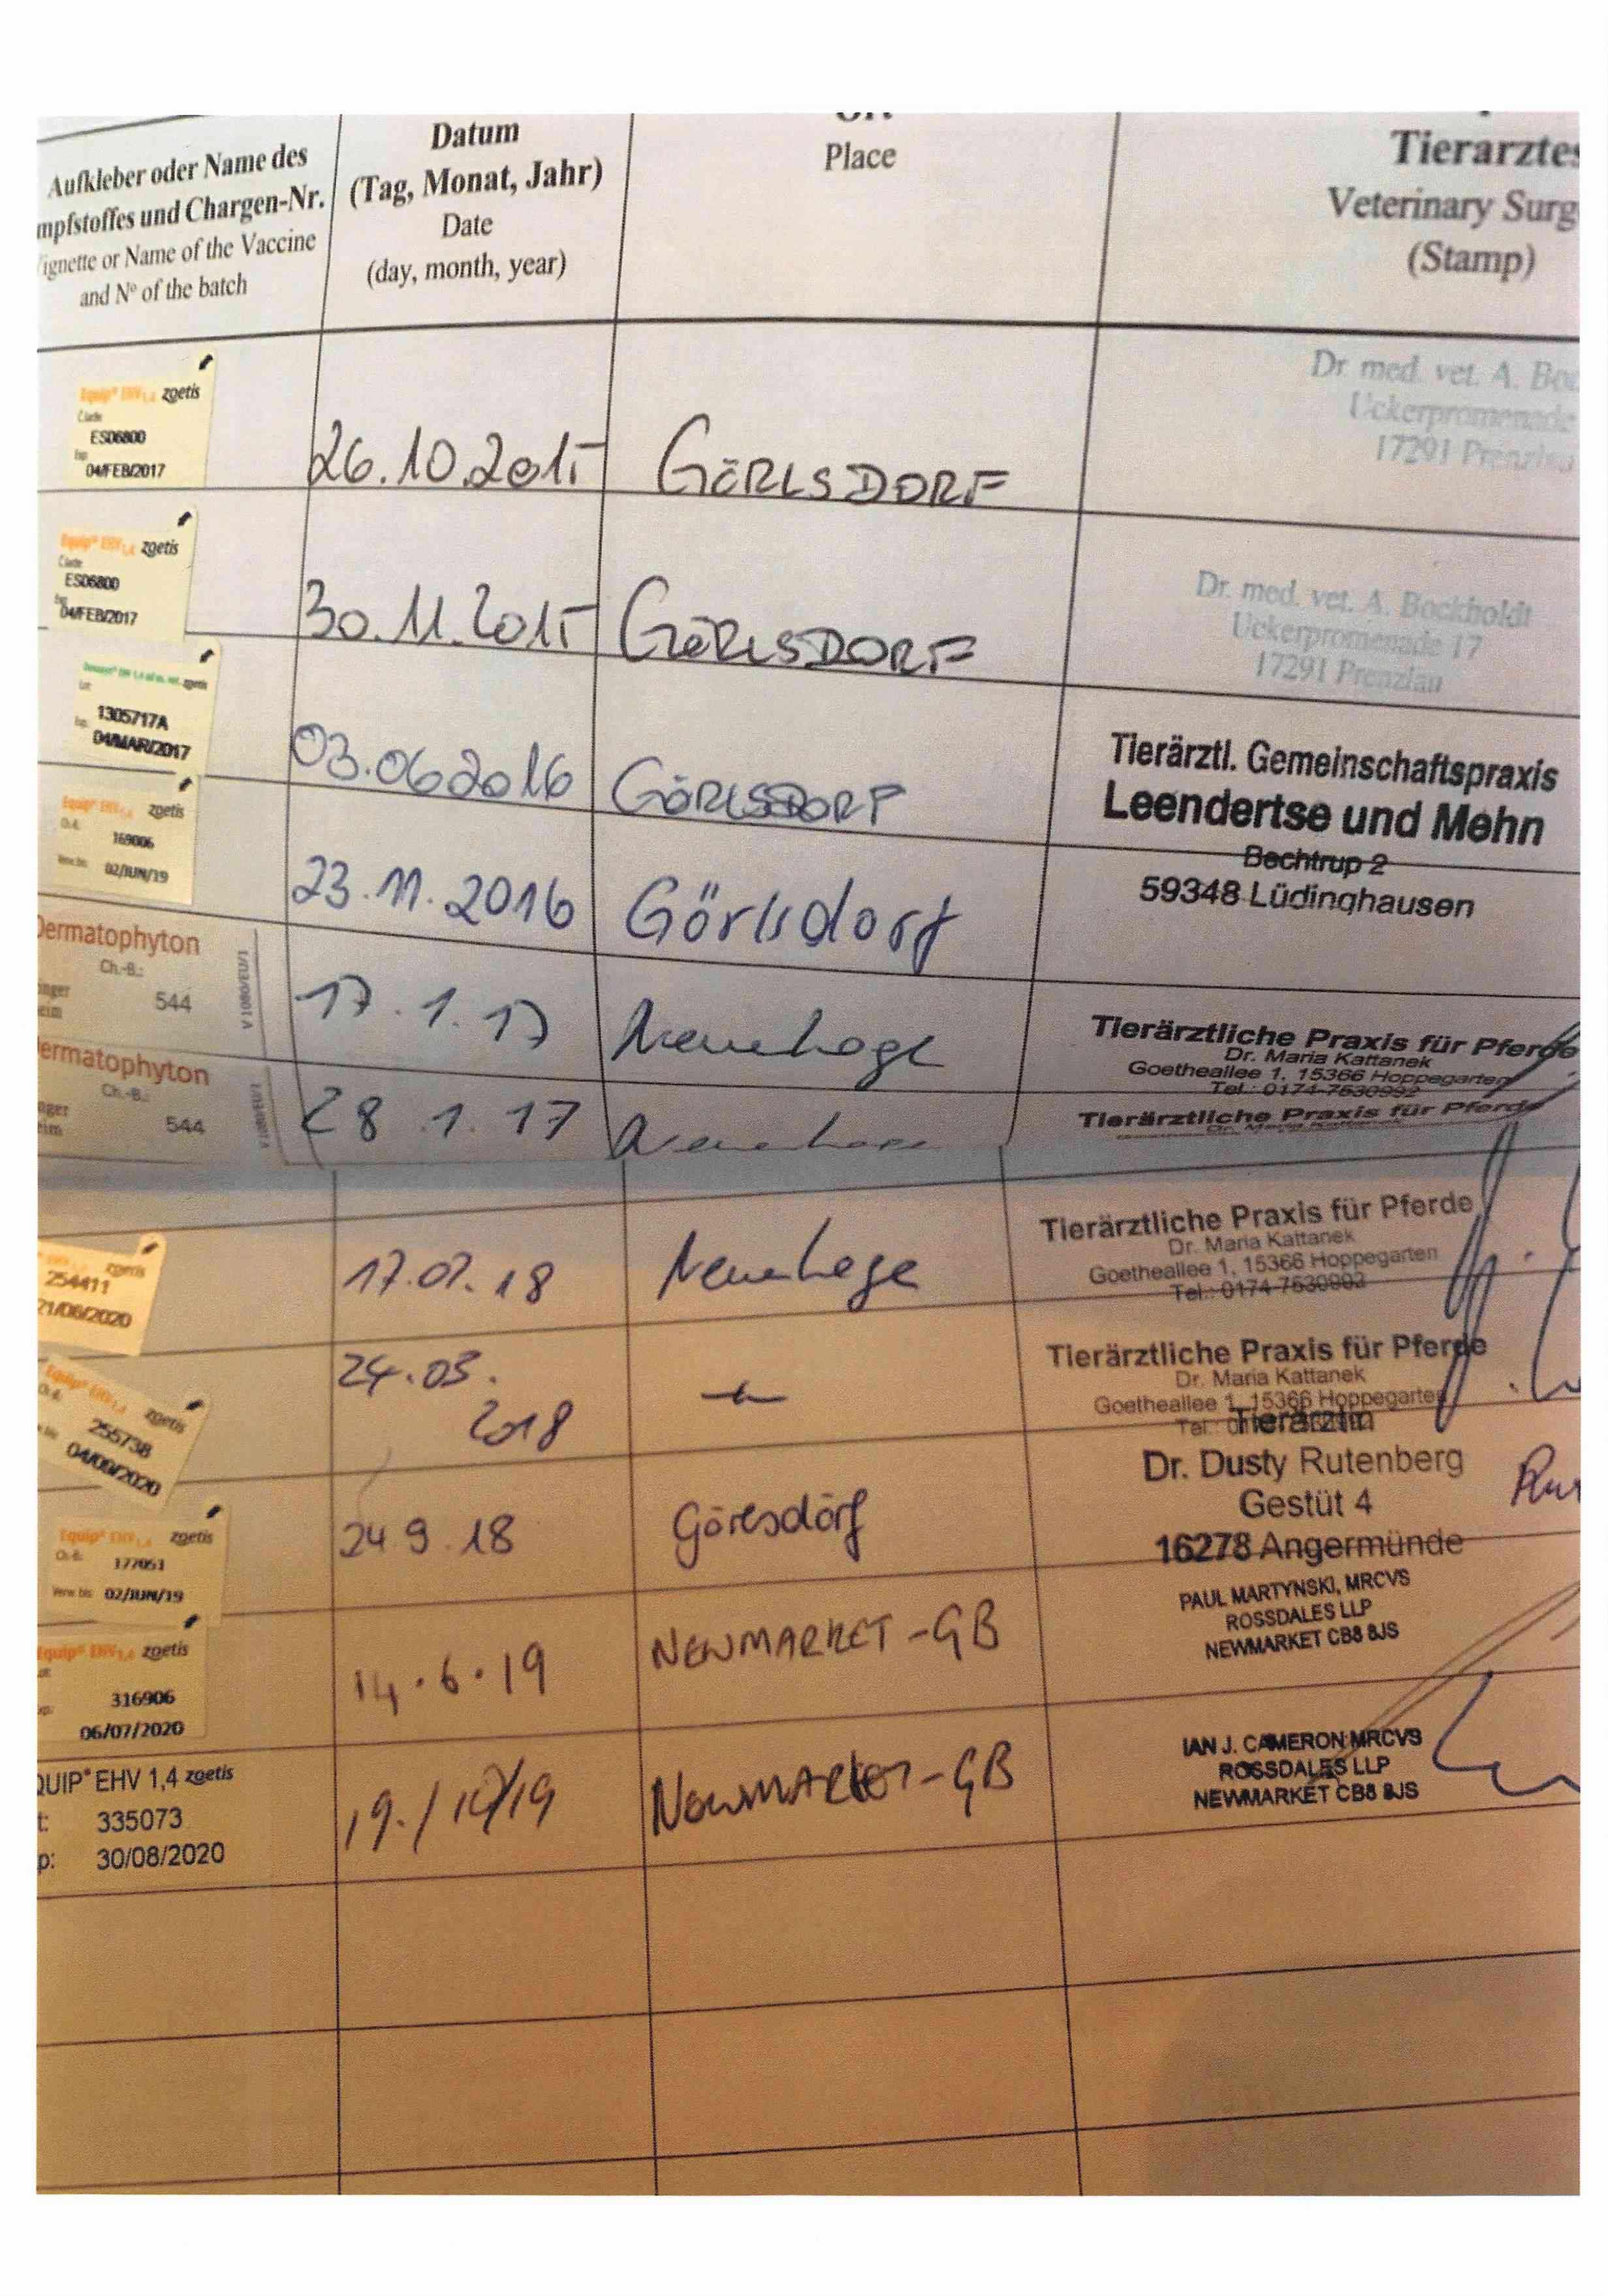 Aufkleber oder Name des
mpfstoffes und Chargen-Nr.
ignette or Name of the Vaccine
and Nº of the batch
Datum
(Tag, Monat, Jahr)
Date
(day, month, year)
Ort
Place
Tierarztes
Veterinary Surg
(Stamp)
Equip® EHV1,4 zoetis
ES06800
Exp
04/FEB/2017
26.10.2015
GÖRLSDORF
Dr. med. vet. A. Bo
Uckerpromenade
17291 Prenzlau
Equip® EHV1,4 zoetis
ES06800
Exp
04/FEB/2017
30.11.2015
GÖRLSDORF
Dr. med. vet. A. Bockholdt
Uckerpromenade 17
17291 Prenzlau
zoetis
Lot
1305717A
Exp.
04/MAR/2017
03.06.2016
GÖRLSDORF
Tierärztl. Gemeinschaftspraxis
Leendertse und Mehn
Bechtrup 2
59348 Lüdinghausen
Equip® EHV1,4 zoetis
Ch.-B.:
169006
Verw. bis: 02/JUN/19
23.11.2016
Görlsdorf
Dermatophyton
Ch.-B.:
nger
eim
544
17.1.17
Neuenhage
Tierärztliche Praxis für Pferde
Dr. Maria Kattanek
Goetheallee 1, 15366 Hoppegarten
Tel.: 0174-7530992
ermatophyton
Ch.-B.:
nger
eim
544
28.1.17
Tierärztliche Praxis für Pferde
Dr. Maria Kattanek
zoetis
254411
21/06/2020
17.02.18
Neuenhage
Tierärztliche Praxis für Pferde
Dr. Maria Kattanek
Goetheallee 1, 15366 Hoppegarten
Tel.: 0174-7530992
Equip® EHV1,4 zoetis
Ch.-B.:
255738
04/09/2020
24.03.
2018
Tierärztliche Praxis für Pferde
Dr. Maria Kattanek
Goetheallee 1, 15366 Hoppegarten
Tel.:
Equip® EHV1,4 zoetis
Ch.-B.:
177051
Verw. bis: 02/JUN/19
24.9.18
Görlsdorf
Tierärztin
Dr. Dusty Rutenberg
Gestüt 4
16278 Angermünde
Equip® EHV1,4 zoetis
316906
06/07/2020
14.6.19
NEWMARKET-GB
PAUL MARTYNSKI, MRCVS
ROSSDALES LLP
NEWMARKET CB8 8JS
QUIP® EHV 1,4 zoetis
t: 335073
p: 30/08/2020
19./10/19
NEWMARKET-GB
IAN J. CAMERON MRCVS
ROSSDALES LLP
NEWMARKET CB8 8JS